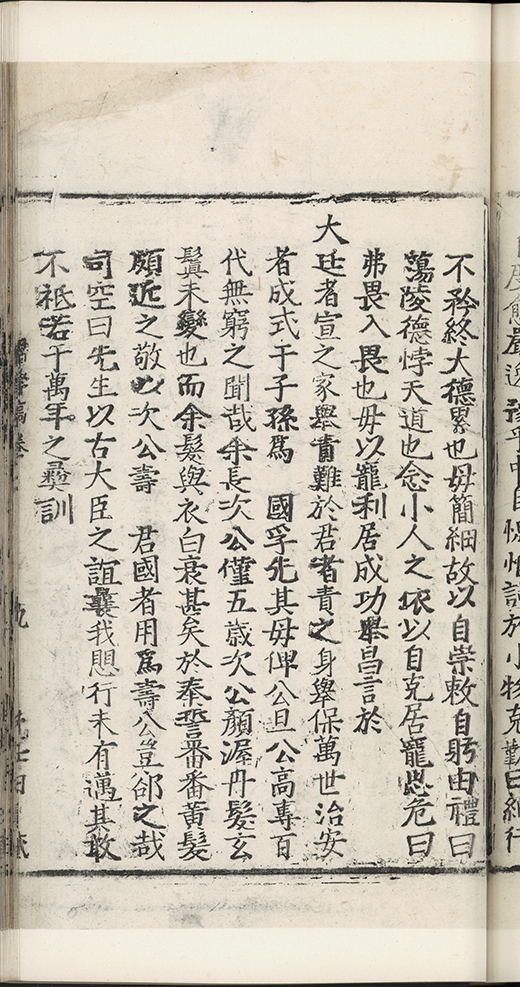 不矜終大德累也毋簡細故以自崇敕自躬由禮曰
蕩陵德悖天道也念小人之依以自克居寵思危曰
弗畏入畏也毋以寵利居成功舉昌言於
大廷者宣之家舉責難於君者責之身舉保萬世治安
者成式于子孫爲 國孚先其毋俾公旦公高專百
代無窮之聞哉余長次公僅五歳次公顏渥丹髮玄
鬒未變也而余髮與衣白衰甚矣於奉誓番番黃髮
頗近之敬以次公壽 君國者用爲壽公豈郤之哉
司空曰先生以古大臣之誼襄我愳行未有邁其敢
不祇若千萬年之彝訓